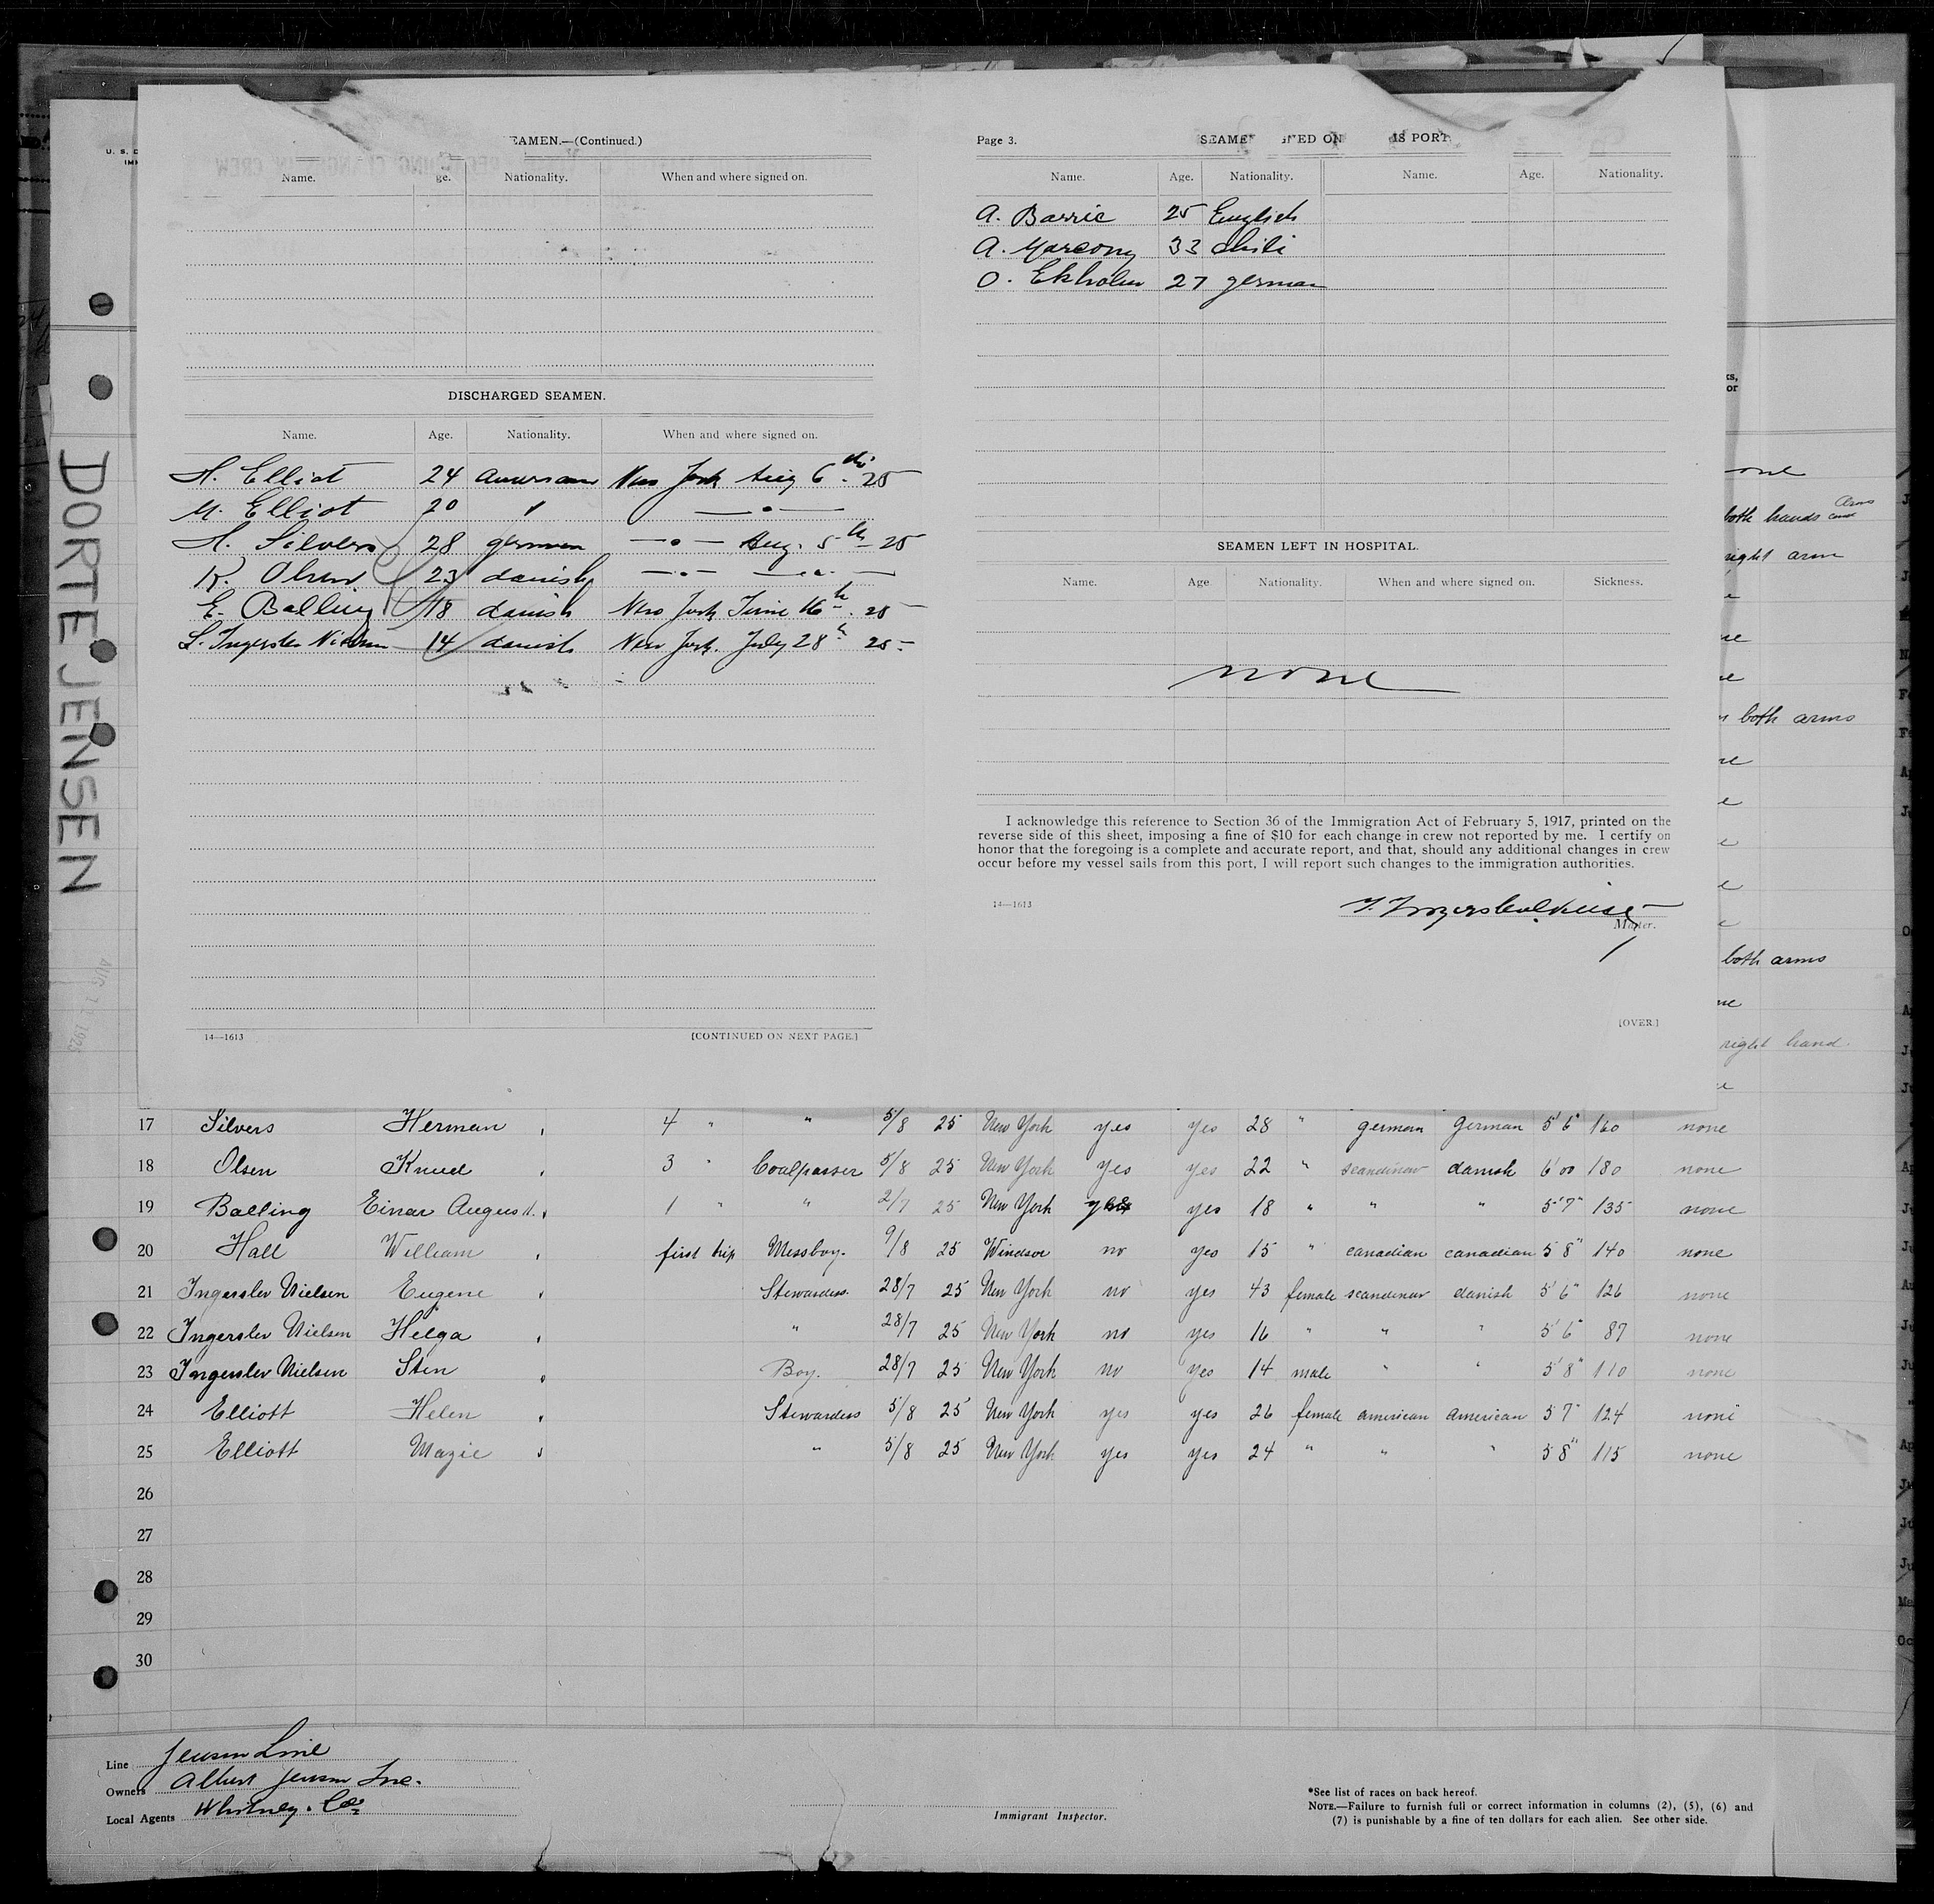 DORTE JENSEN
U. S. D
IM
EAMEN.—(Continued.)
Name. ge. Nationality. When and where signed on.
DISCHARGED SEAMEN.
Name. Age. Nationality. When and where signed on.
H. Elliot 24 american New York Aug 6th 25
M. Elliot 20 " —"—
H. Silvers 28 german —"— Aug. 5th 25
K. Olsen 23 danish —"— —"—
E. Balling 18 danish New York June 16th. 25
S. Ingerslev Nielsen 14 danish New York. July 28th 25
14—1613 [CONTINUED ON NEXT PAGE.]
Page 3. SEAMEN NED ON IS PORT
Name. Age. Nationality. Name. Age. Nationality.
A. Barrie 25 English
A. Marcony 33 chili
O. Ekholm 27 german
SEAMEN LEFT IN HOSPITAL.
Name. Age Nationality. When and where signed on. Sickness.
none
I acknowledge this reference to Section 36 of the Immigration Act of February 5, 1917, printed on the
reverse side of this sheet, imposing a fine of $10 for each change in crew not reported by me. I certify on
honor that the foregoing is a complete and accurate report, and that, should any additional changes in crew
occur before my vessel sails from this port, I will report such changes to the immigration authorities.
14—1613
Master.
[OVER.]
both hands
right arm
both arms
both arms
right hand
17 Silvers Herman 4 " " 5/8 25 New York yes yes 28 " german german 5'6" 160 none
18 Olsen Knud 3 " Coalpasser 5/8 25 New York yes yes 22 " scandinav danish 6'00 180 none
19 Balling Einar August. 1 " " 2/7 25 New York yes yes 18 " " " 5'7" 135 none
20 Hall William first trip Messboy. 9/8 25 Windsor no yes 15 " canadian canadian 5 8" 140 none
21 Ingerslev Nielsen Eugene Stewardess. 28/7 25 New York no yes 43 female scandinav danish 5'6" 126 none
22 Ingerslev Nielsen Helga " 28/7 25 New York no yes 16 " " " 5'6" 87 none
23 Ingerslev Nielsen Sten Boy. 28/7 25 New York no yes 14 male " " 5'8" 110 none
24 Elliott Helen Stewardess 5/8 25 New York yes yes 26 female american american 5 7" 124 none
25 Elliott Mazie " 5/8 25 New York yes yes 24 " " " 5 8" 115 none
26
27
28
29
30
Line Jensen Line
Owners Albert Jensen Inc.
Local Agents Whitney. Co
Immigrant Inspector.
*See list of races on back hereof.
NOTE.—Failure to furnish full or correct information in columns (2), (5), (6) and
(7) is punishable by a fine of ten dollars for each alien. See other side.